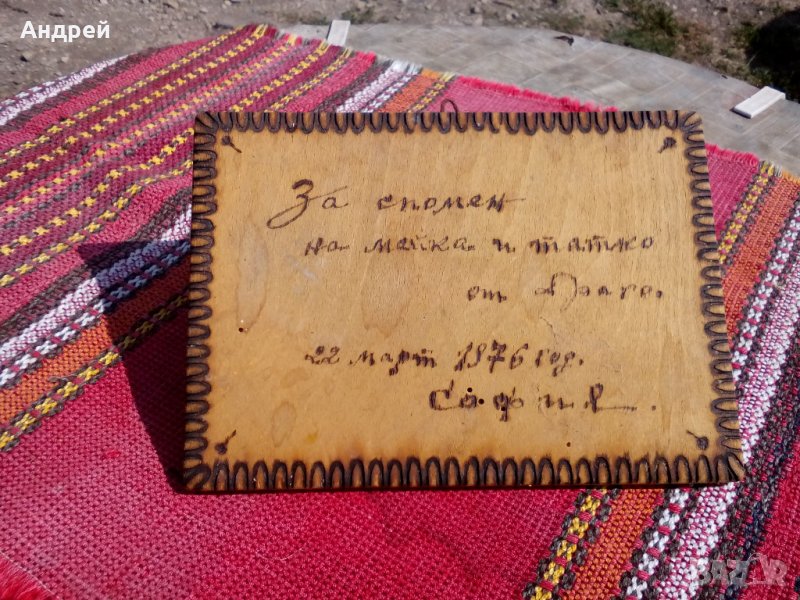 Андрей
За спомен
на майка и татко
от
22 март 1976 год.
София.
BAZAR